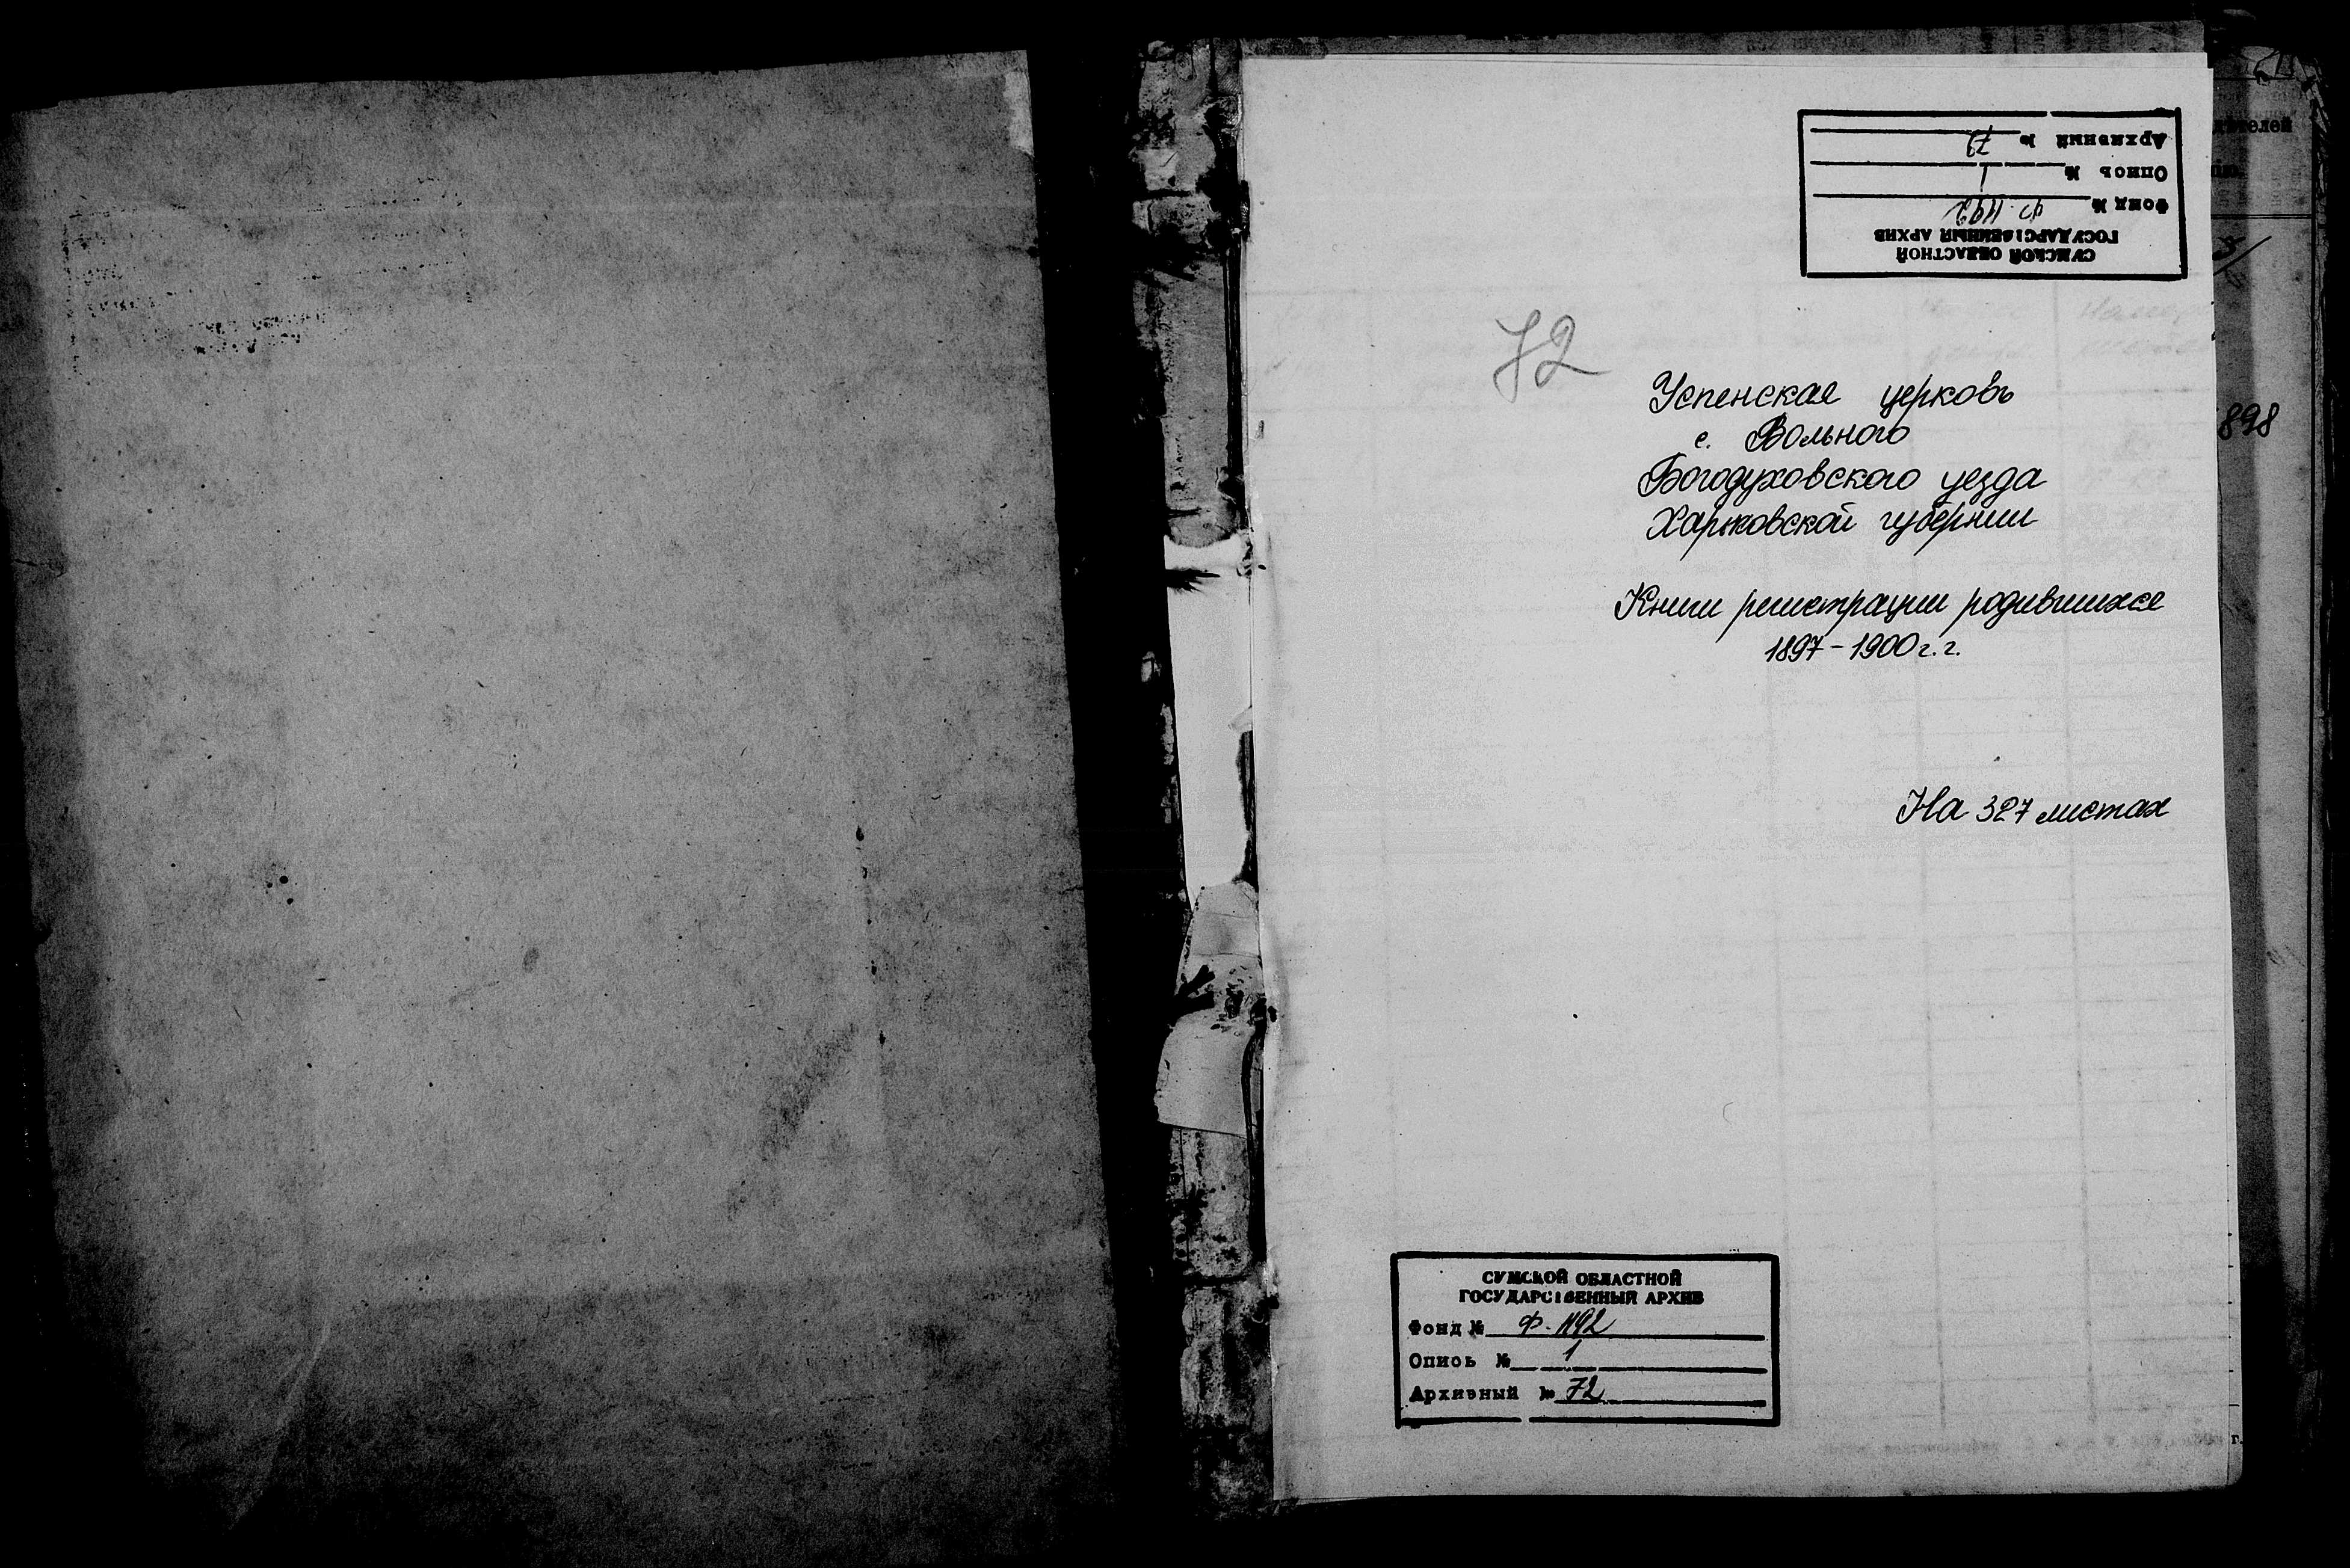 Архивный № 72
Опись № 1
Фонд № Ф-1192
ГОСУДАРСТВЕННЫЙ АРХИВ
СУМСКОЙ ОБЛАСТНОЙ
72
Успенская церковь
с. Вольного
Богодуховского уезда
Харьковской губернии
898
Книги регистрации родившихся
1897-1900 г.г.
На 327 листах
СУМСКОЙ ОБЛАСТНОЙ
ГОСУДАРСТВЕННЫЙ АРХИВ
Фонд № Ф-1192
Опись № 1
Архивный № 72
г.